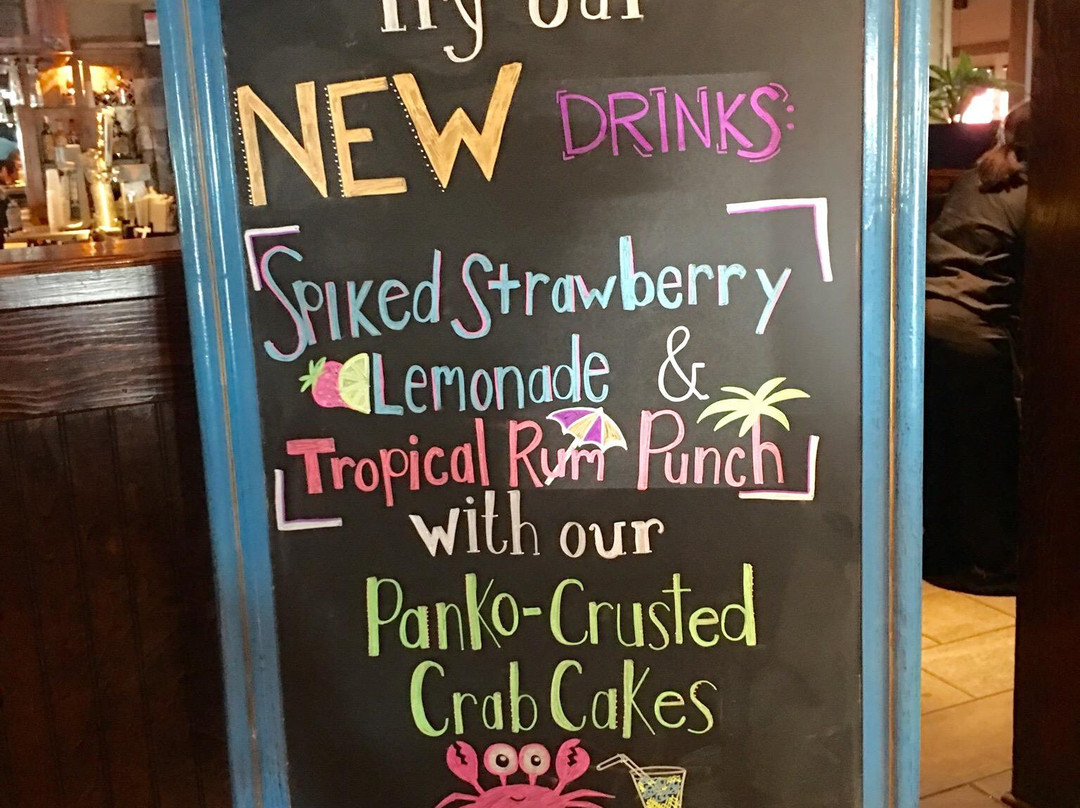 Try our
NEW DRINKS:
Spiked Strawberry
Lemonade &
Tropical Rum Punch
with our
Panko-Crusted
Crab Cakes